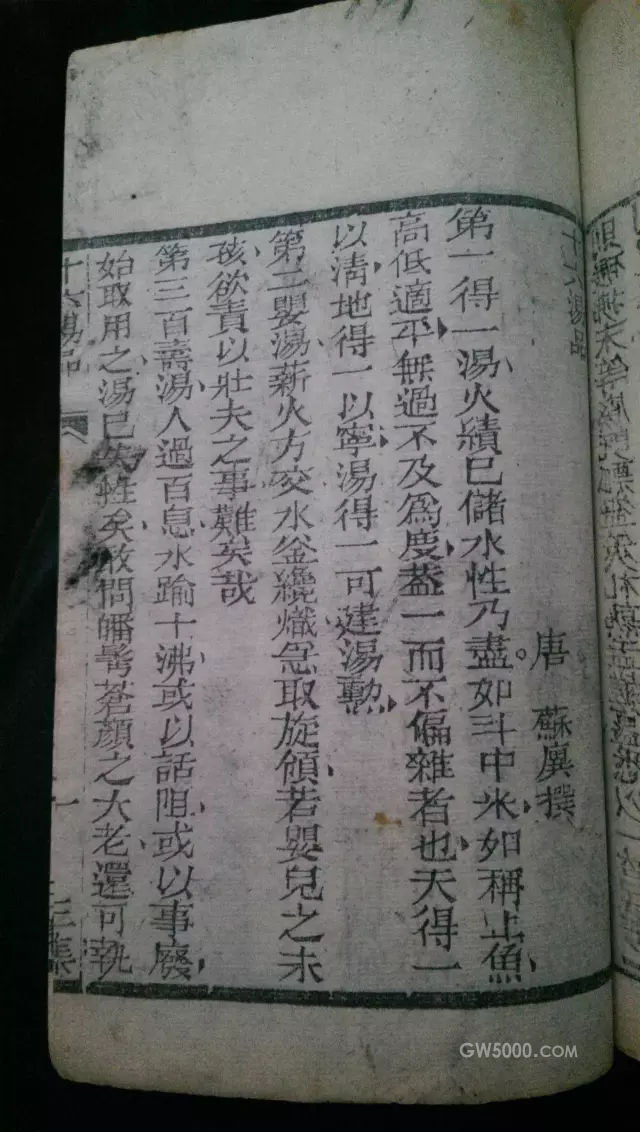 十六湯品
唐 蘇廙撰
第一得一湯火績已儲水性乃盡如斗中米如稱上魚
高低適平無過不及爲度蓋一而不偏雜者也天得一
以清地得一以寧湯得一可建湯勳
第二嬰湯薪火方交水釜纔熾急取旋傾若嬰兒之未
孩欲責以壯夫之事難矣哉
第三百壽湯人過百息水踰十沸或以話阻或以事廢
始取用之湯已失性矣敢問皤鬢蒼顏之大老還可執
十六湯品
GW5000.COM